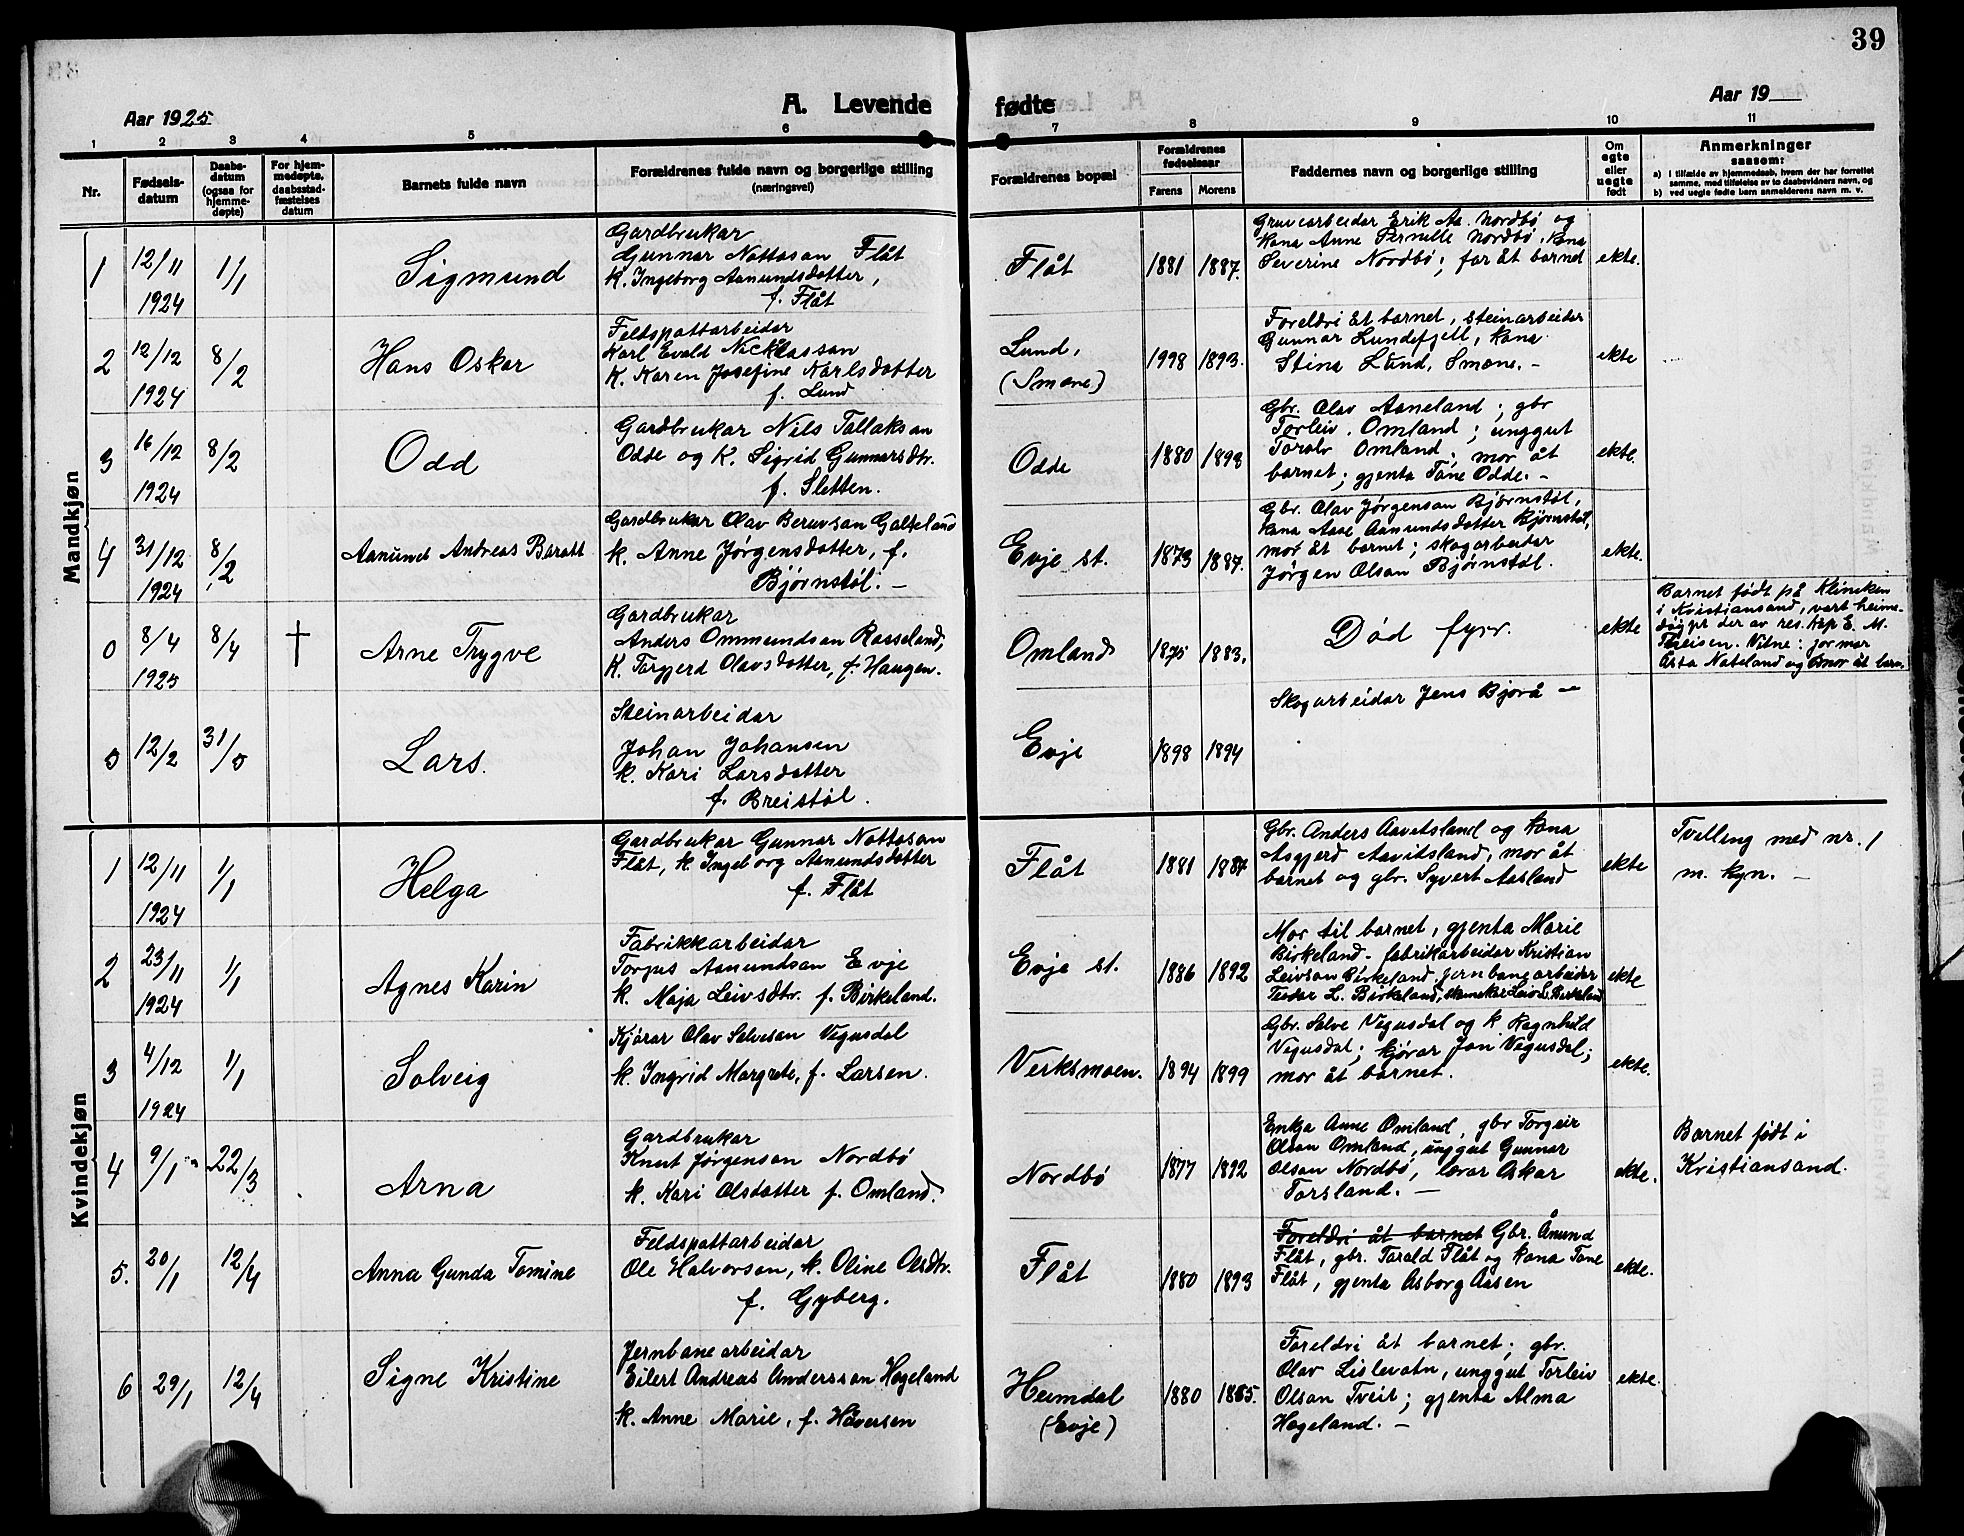 39
Aar 1925
A. Levende
fødte
Aar 19
1 2 3 4 5 6 7 8 9 10 11
Nr.
Fødsels-
datum
Daabs-
datum
(ogsaa for
hjemme-
døpte)
For hjem-
medøpte,
daabsstad-
fæstelses
datum
Barnets fulde navn
Forældrenes fulde navn og borgerlige stilling
(næringsvei)
Forældrenes bopæl
Forældrenes
fødselsaar
Farens
Morens
Faddernes navn og borgerlige stilling
Om
egte
eller
uegte
født
Anmerkninger
saasom:
a) i tilfælde av hjemmedaab, hvem der har forrettet
samme, med tilføielse av to daabsvidners navn, og
b) ved uegte fødte barn anmelderens navn m. v.
Mandkjøn
1
12/11
1924
1/1
Sigmund
Gardbrukar
Gunnar Nottason Flåt
K. Ingeborg Aanundsdotter,
f. Flåt
Flåt
1881
1887.
Gruvearbeidar Erik Aa. Nordbø og
kona Anne Pernille Nordbø, kona
Severine Nordbø; far åt barnet
ekte.
2
12/12
1924
8/2
Hans Oskar
Feldspattarbeidar
Karl Evald Nicklasson
K. Karen Josefine Karlsdotter
f. Lund
Lund,
(Smøne)
1998
1893.
Foreldri åt barnet, steinarbeidar
Gunnar Lundefjell, kona
Stina Lund, Smøne. -
ekte
3
16/12
1924
8/2
Odd
Gardbrukar Nils Tallakson
Odde og K. Sigrid Gunnarsdtr.
f. Sletten.
Odde
1880
1898
Gbr. Olav Aaneland; gbr
Torleiv. Omland; unggut
Toralv Omland; mor åt
barnet; gjenta Tone Odde. -
ekte.
4
31/12
1924
8/2
Aanund Andreas Baratt
Gardbrukar Olav Beruvson Galteland
k. Anne Jørgensdotter, f.
Bjørnstøl. -
Evje st.
1873
1887.
Gbr. Olav Jørgenson Bjørnstøl,
kona Aase Aanundsdotter Bjørnstøl,
mor åt barnet; skogarbeidar
Jørgen Olson Bjørnstøl.
ekte.
0
8/4
1925
8/4
†
Arne Trygve
Gardbrukar
Anders Ommundson Rosseland,
K. Torgjerd Olavsdotter, f. Haugen.
Omland
1875
1883.
Død fyrr.
ekte
Barnet født på Kliniken
i Kristiansand, vart heime-
døypt der av res. kap E. M.
Theisen. Vitne: jormor
Asta Nateland og mor åt barn.
0
12/2
31/0
Lars.
Steinarbeidar
Johan Johansen
k. Kari Larsdotter
f. Breistøl.
Evje
1898
1894
Skogarbeidar Jens Bjorå -
Kvindekjøn
1
12/11
1924
1/1
Helga
Gardbrukar Gunnar Nottason
Flåt, k. Ingeborg Aanundsdotter
f. Flåt
Flåt
1881
1887
Gbr. Anders Aavitsland og kona
Asgjerd Aavitsland, mor åt
barnet og gbr. Syvert Aasland
ekte
Tvelling med nr. 1
m. kyn. -
2
23/11
1924
1/1
Agnes Karin
Fabrikkarbeidar
Torgus Aanundson Evje
k. Maja Leivsdtr. f. Birkeland.
Evje st.
1886
1892
Mor til barnet, gjenta Marie
Birkeland. fabrikarbeidar Kristian
Leivson Birkeland, jernbanearbeidar
Teodor L. Birkeland, Leiv L. Birkeland
ekte
3
4/12
1924
1/1
Solveig
Kjørar Olav Salveson Vegusdal
k. Ingrid Margrete, f. Larsen.
Verksmoen.
1894
1899
Gbr. Salve Vegusdal og k Ragnhild
Vegusdal; kjørar Jon Vegusdal;
mor åt barnet.
ekte.
4
9/1
22/3
Arna
Gardbrukar
Knut Jørgenson Nordbø
k. Kari Olsdotter f. Omland.
Nordbø
1877
1892
Enkja Anne Omland, gbr Torgeir
Olson Omland, unggut Gunnar
Olson Nordbø, lærar Oskar
Torsland. -
ekte.
Barnet født i
Kristiansand.
5.
20/1
12/4
Anna Gunda Tomine
Feldspattarbeidar
Ole Halvorson, k. Oline Olsdtr.
f. Gyberg.
Flåt
1880
1893
Foreldri åt barnet Gbr. Ånund
Flåt, gbr. Torald Flåt og kona Tone
Flåt, gjenta Asborg Åsen
ekte.
6
29/1
12/4
Signe Kristine
Jernbanearbeidar
Eilert Andreas Andersson Hogeland
k. Anne Marie, f. Håversen
Heimdal
(Evje)
1880
1885.
Foreldri åt barnet; gbr.
Olav Lislevatn, unggut Torleiv
Olson Tveit; gjenta Alma
Hogeland. -
ekte.